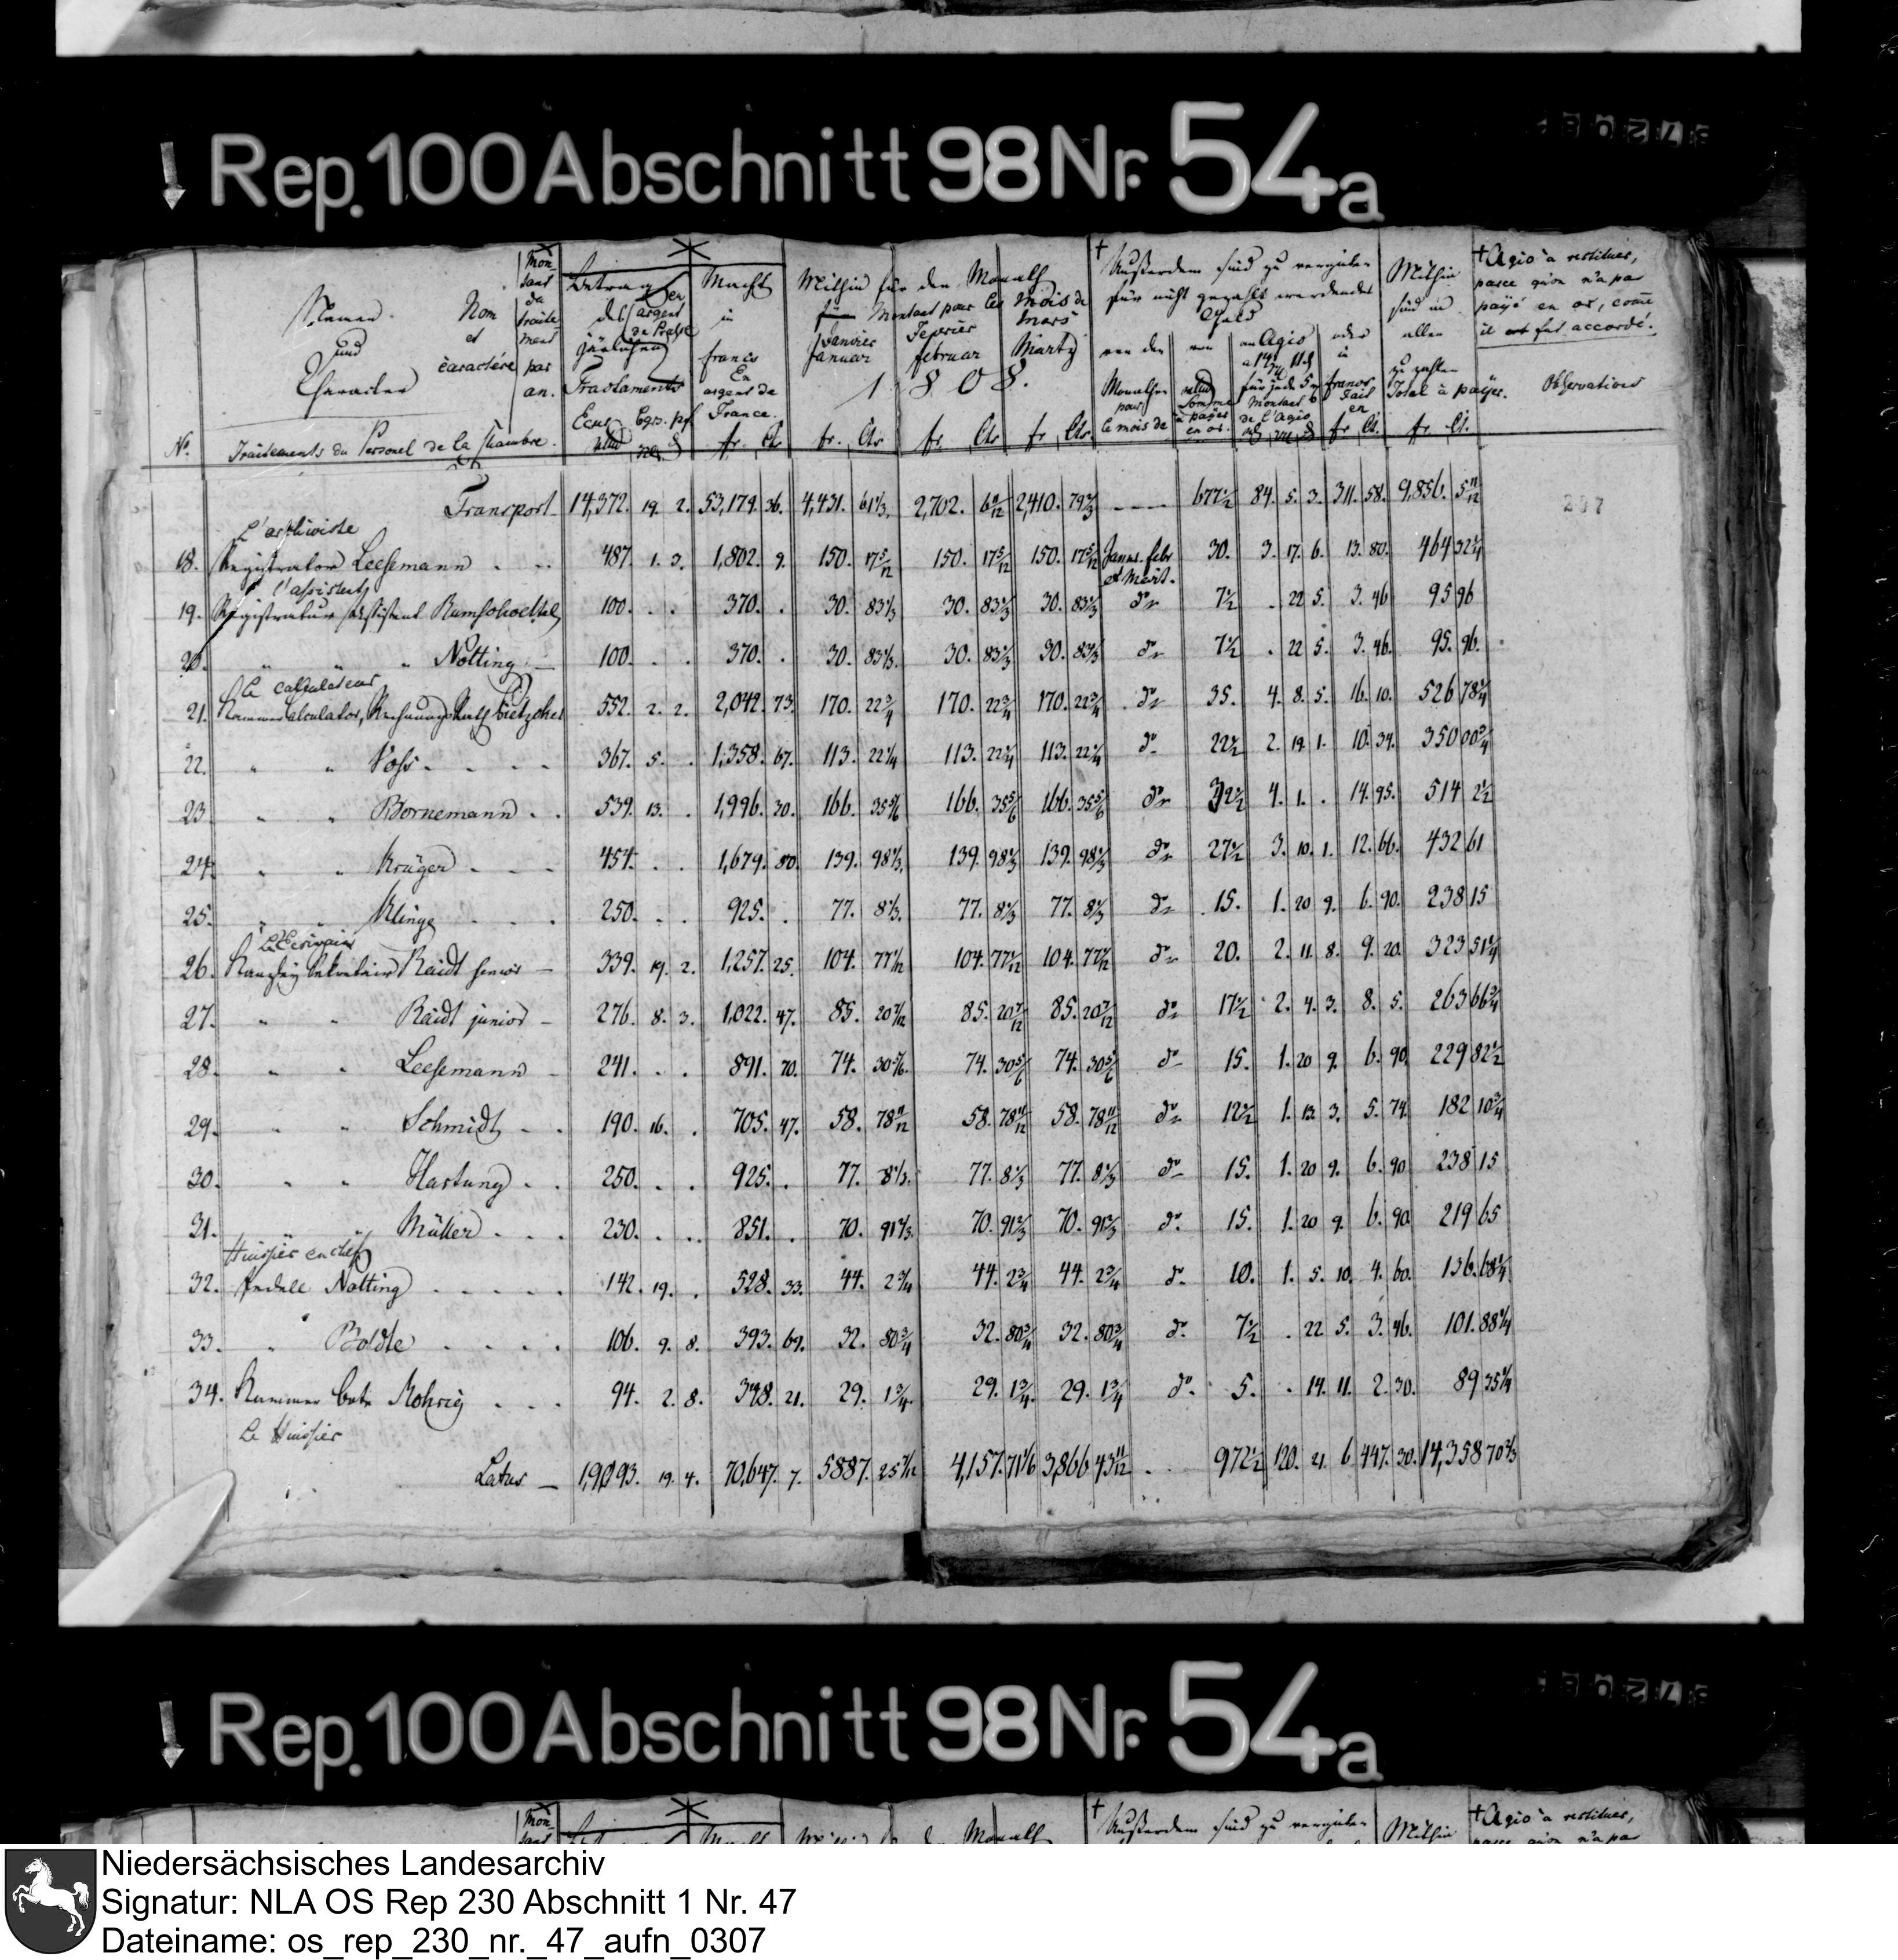 Rep. 100 Abschnitt 98 Nr. 54a
Namen Nom
und et
Character caractére
Montant du traitement par an.
Betrag des jährlichen Tractaments
argent de Prusse
Ecus Bgrs. pf.
Macht in francs
En argent de France.
fr. Cts
Mithin für den Monath
Montant pour les Mois de
Janvier Fevrier Mars
Januar februar Martz
1 8 0 8.
fr. Cts fr. Cts fr. Cts
† Außerdem sind zu vergüten
für nicht gezahlt werdendes
Gold
von den Monathen
pour le mois de
Somme à payer en or.
an Agio
für jede 5
Montant de l'Agio
oder in francs
fait en
fr. Ct.
Mithin sind in allen zu zahlen
Total à payer.
fr. Ct.
† Agio à restituer,
parce qu'on n'a pas
payé en or, come
il est fut accordé.
Observations
No. Traitements du Personel de la Chambre.
Transport 14,372. 19. 2. 53,179. 36. 4,431. 61⅓. 2,702. 6 11/12 2,410. 79⅔ — 677½ 84. 5. 3. 311. 58. 9,856. 5 11/12
297
L'archiviste
18. Registrator Leesemann 487. 1. 3. 1,802. 9. 150. 17 5/12 150. 17 5/12 150. 17 5/12 Janv. febr et Mart. 30. 3. 17. 6. 13. 80. 464 32¼
l'assistent
19. Registratur Assistent Ramsohoettel 100. . . 370. . 30. 83⅓ 30. 83⅓ 30. 83⅓ do 7½ . 22 5. 3. 46 95 96
20. " " " Nolting 100. . . 370. . 30. 83⅓. 30. 83⅓ 30. 83⅓ do 7½ . 22 5. 3. 46. 95. 96.
le calculateur
21. Kammer Calculator, Rechnungs Rath Tietzchel 552. 2. 2. 2,042. 73. 170. 22¾ 170. 22¾ 170. 22¾ do 35. 4. 8. 5. 16. 10. 526 78¼
22. " " Voss 367. 5. . 1,358. 67. 113. 22¼ 113. 22¼ 113. 22¼ do 22½ 2. 19. 1. 10. 34. 350 00¾
23 " " Bornemann 539. 13. . 1,996. 30. 166. 35⅚ 166. 35⅚ 166. 35⅚ do 32½ 4. 1. . 14. 95. 514 2½
24. " " Krüger 454. . . 1,679. 80. 139. 98⅓. 139. 98⅓ 139. 98⅓ do 27½ 3. 10. 1. 12. 66. 432 61
25. " " Klinge 250. . . 925. . 77. 8⅓. 77. 8⅓ 77. 8⅓ do 15. 1. 20 9. 6. 90. 238 15
L'Ecrivain
26. Kanzley Sekretair Raidt senior 339. 19. 2. 1,257. 25. 104. 77 1/12 104. 77 1/12 104. 77 1/12 do 20. 2. 11. 8. 9. 20. 323 51¼
27. " " Raidt junior 276. 8. 3. 1,022. 47. 85. 20 7/12 85. 20 7/12 85. 20 7/12 do 17½ 2. 4. 3. 8. 5. 263 66¾
28. " " Leesemann 241. . . 891. 70. 74. 30⅚. 74. 30⅚ 74. 30⅚ do 15. 1. 20 9. 6. 90. 229 82½
29. " " Schmidt 190. 16. . 705. 47. 58. 78 11/12 58. 78 11/12 58. 78 11/12 do 12½ 1. 13. 3. 5. 74. 182 10¾
30. " " Hartung 250. . . 925. . 77. 8⅓. 77. 8⅓ 77. 8⅓ do 15. 1. 20 9. 6. 90 238 15
31. " " Müller 230. . . 851. . 70. 91⅔. 70. 91⅔ 70. 91⅔ do. 15. 1. 20 9. 6. 90. 219 65
Huissier en chef
32. Pedell Nolting 142. 19. . 528. 33. 44. 2¾ 44. 2¾ 44. 2¾ do. 10. 1. 5. 10. 4. 60. 136. 68¼
33. " Boldte 106. 9. 8. 393. 69. 32. 80¾ 32. 80¾ 32. 80¾ do. 7½ . 22 5. 3. 46. 101. 88¼
34. Kammer Bote Rohrig 94. 2. 8. 348. 21. 29. 1¾. 29. 1¾. 29. 1¾ do. 5. . 14. 11. 2. 30. 89 35¼
Le Huissier
Latus — 19,093. 19. 4. 70,647. 7. 5887. 25 7/12 4,157. 71⅙ 3,866. 43 11/12 . . 972½ 120. 21. 6 447. 30. 14,358 70⅔
Rep. 100 Abschnitt 98 Nr. 54a
† Außerdem sind zu vergüten
Mithin
† Agio à restituer,
Niedersächsisches Landesarchiv
Signatur: NLA OS Rep 230 Abschnitt 1 Nr. 47
Dateiname: os_rep_230_nr._47_aufn_0307